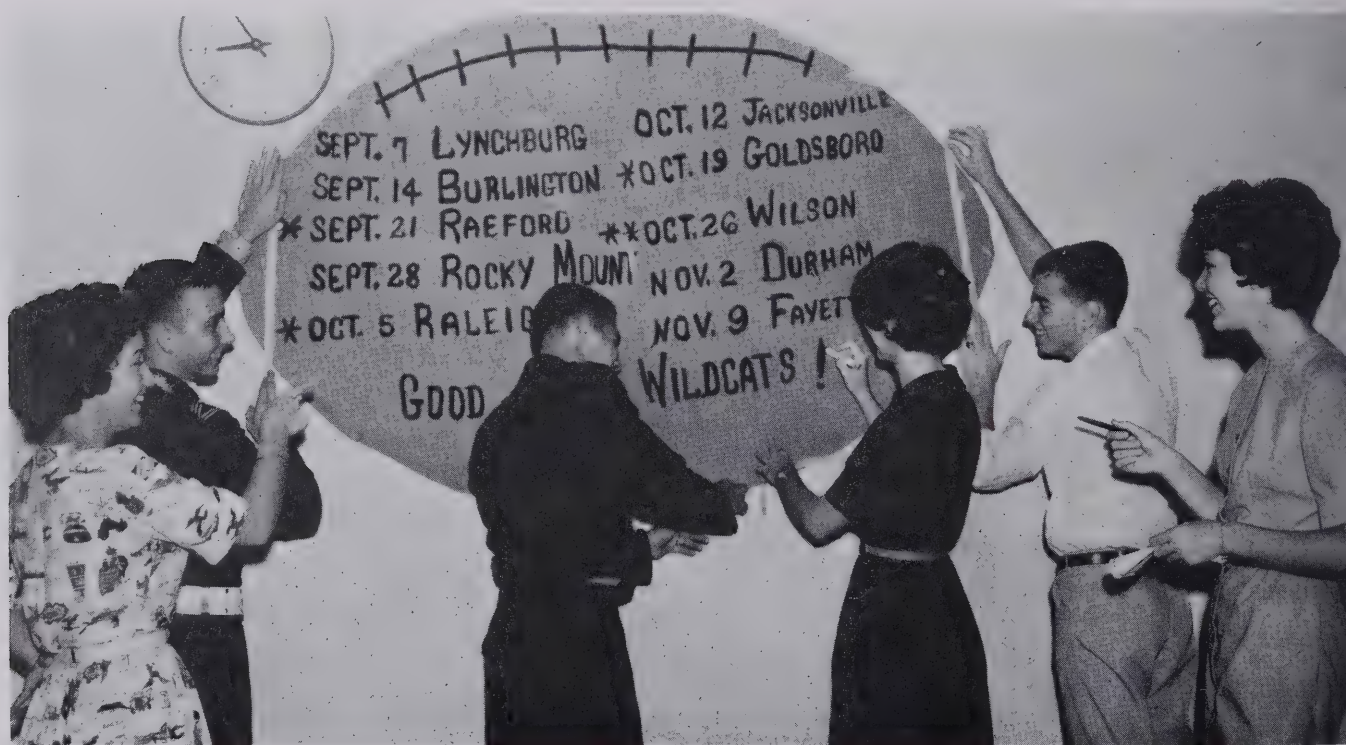 SEPT. 7 LYNCHBURG
SEPT. 14 BURLINGTON
*SEPT. 21 RAEFORD
SEPT. 28 ROCKY MOUNT
*OCT. 5 RALEIG
OCT. 12 JACKSONVILLE
*OCT. 19 GOLDSBORO
**OCT. 26 WILSON
NOV. 2 DURHAM
NOV. 9 FAYET
GOOD WILDCATS!